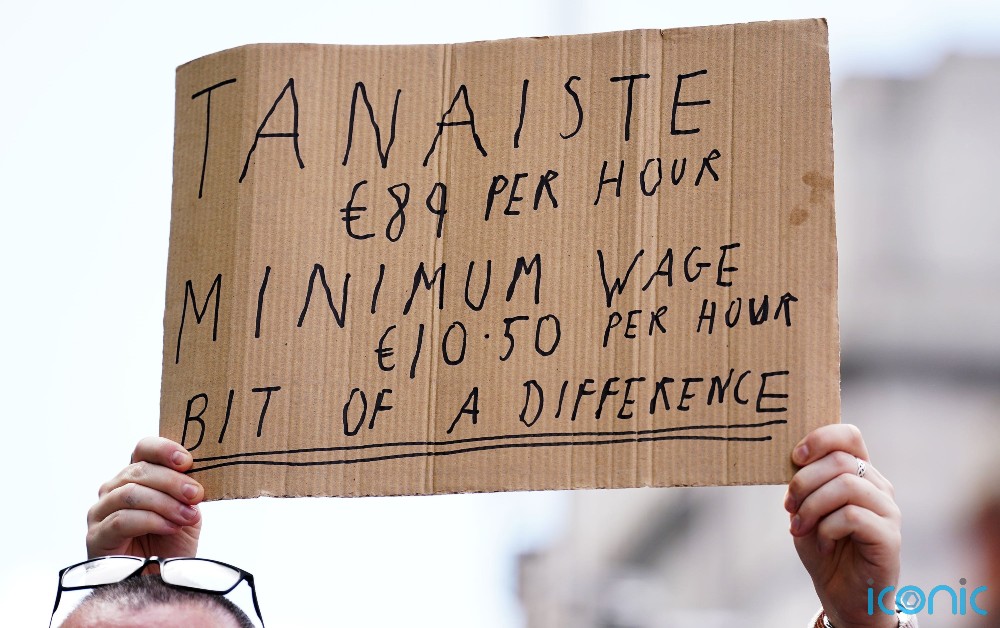 TANAISTE
€89 PER HOUR
MINIMUM WAGE
€10.50 PER HOUR
BIT OF A DIFFERENCE
iconic